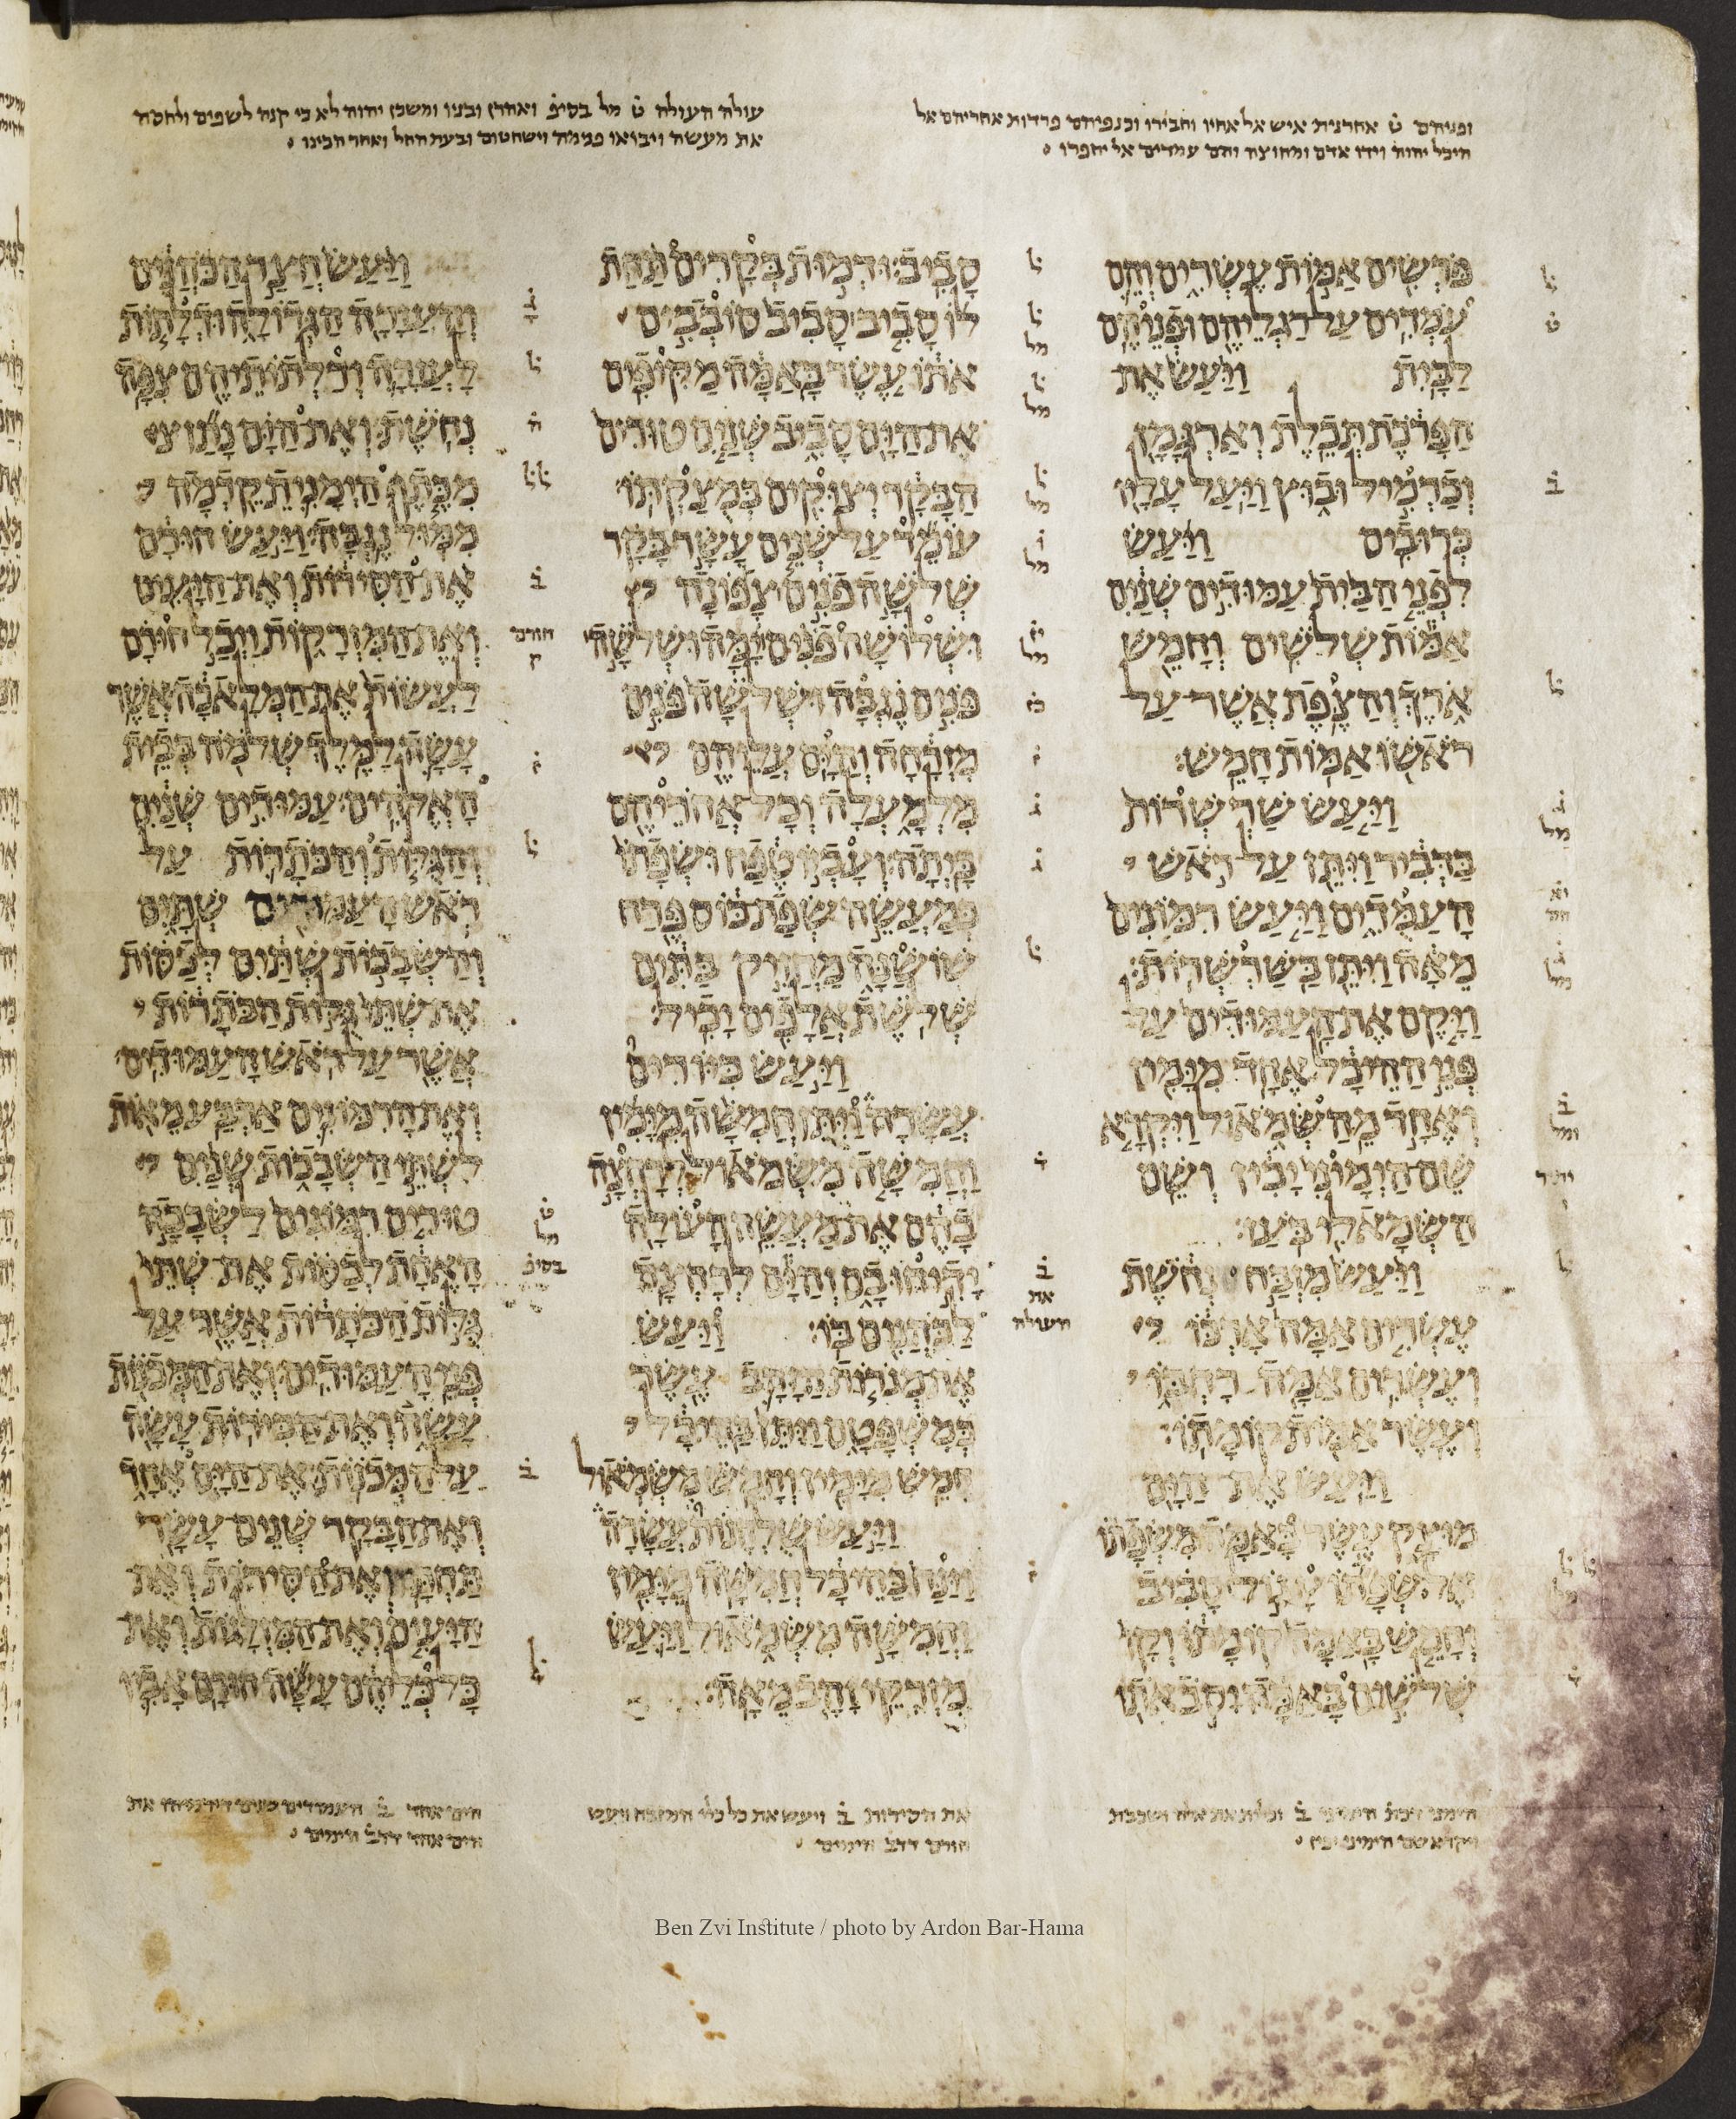 ופניהם ט אחרנית איש אל אחיו וחבירו וכנפיהם פרדות אחריהם אל
היכל יהוה וידו אדם ומחוצה והם עמדים אל יחפרו
עולה העולה ט מל בסיפ ואהרן ובניו ומשכן יהוה לא כי קנה לשפים ולחסה
את מעשה ויבואו פנימה וישחטום ובעת החל ואחר הכינו
פרשים אמות עשרים והם
עמדים על רגליהם ופניהם
לבית ויעש את
הפרכת תכלת וארגמן
וכרמיל ובוץ ויעל עליו
כרובים ויעש
לפני הבית עמודים שנים
אמות שלשים וחמש
ארך והצפת אשר על
ראשו אמות חמש
ויעש שרשרות
בדביר ויתן על ראש
העמדים ויעש רמונים
מאה ויתן בשרשרות
ויקם את העמודים על
פני ההיכל אחד מימין
ואחד מהשמאול ויקרא
שם הימוני יכין ושם
השמאלי בעז
ויעש מזבח נחשת
עשרים אמה ארכו
ועשרים אמה רחבו
ועשר אמות קומתו
ויעש את הים
מוצק עשר באמה משפתו
אל שפתו עגול סביב
וחמש באמה קומתו וקו
שלשים באמה יסב אתו
סביב ודמות בקרים תחת
לו סביב סביב סובבים
אתו עשר באמה מקיפים
את הים סביב שנים טורים
הבקר יצוקים במצקתו
עומד על שנים עשר בקר
שלשה פנים צפונה
ושלושה פנים ימה ושלשה
פנים נגבה ושלשה פנים
מזרחה והים עליהם
מלמעלה וכל אחריהם
ביתה ועביו טפח ושפתו
כמעשה שפת כוס פרח
שושנה מחזיק בתים
שלשת אלפים יכיל
ויעש כיורים
עשרה ויתן חמשה מימין
וחמשה משמאול לרחצה
בהם את מעשה העולה
ידיחו בם והים לרחצה
לכהנים בו ויעש
את מנרות הזהב עשר
כמשפטם ויתן בהיכל
חמש מימין וחמש משמאול
ויעש שלחנות עשרה
וינח בהיכל חמשה מימין
וחמשה משמאול ויעש
מזרקי זהב מאה
ויעש חצר הכהנים
והעזרה הגדולה ודלתות
לעזרה ודלתותיהם צפה
נחשת ואת הים נתן
מכתף הימנית קדמה
ממול נגבה ויעש חורם
את הסירות ואת היעים
ואת המזרקות ויכל חירם
לעשות את המלאכה אשר
עשה למלך שלמה בבית
האלהים עמודים שנים
והגלות והכתרות על
ראש העמודים שתים
והשבכות שתים לכסות
את שתי גלות הכתרות
אשר על ראש העמודים
ואת הרמונים ארבע מאות
לשתי השבכות שנים
טורים רמונים לשבכה
האחת לכסות את שתי
גלות הכתרות אשר על
פני העמודים ואת המכנות
עשה ואת הכירות עשה
על המכנות את הים אחד
ואת הבקר שנים עשר
תחתיו ואת הסירות ואת
היעים ואת המזלגות ואת
כל כליהם עשה חורם אביו
ויקרא שם הימיני יכין
את הסירות ב ויעש את כל כלי המזבח ויעש
חורם דדב הימים
הים אחד ב העמודים שנים
הים אחד דדב הימים
Ben Zvi Institute / photo by Ardon Bar-Hama